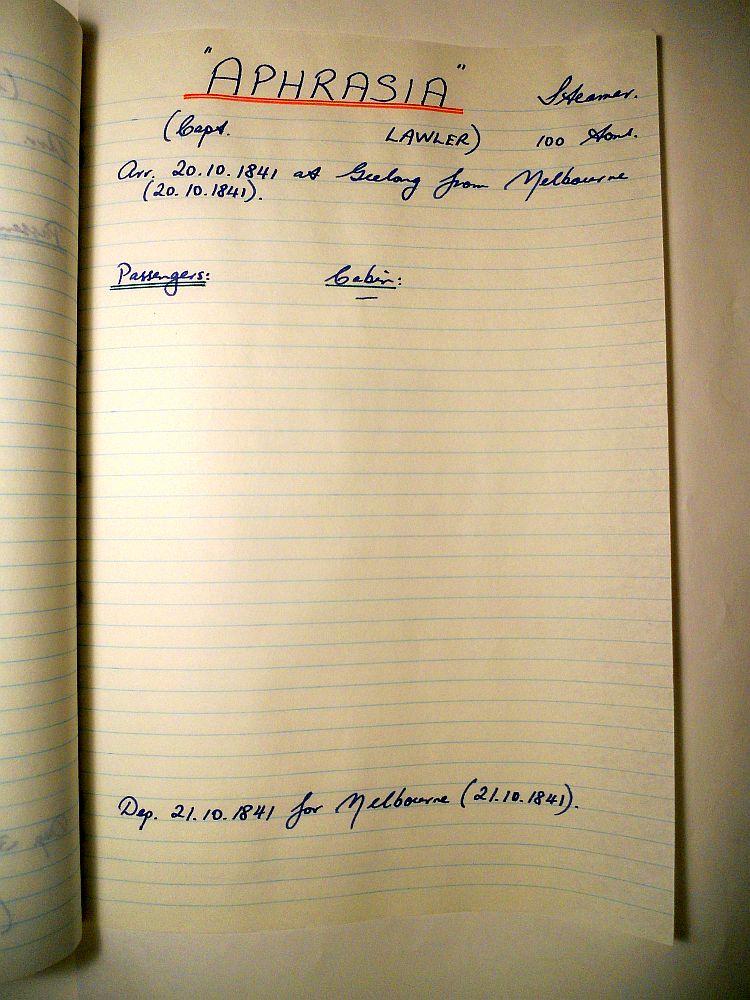 "APHRASIA" Steamer.
(Capt. LAWLER) 100 tons.
Arr. 20.10.1841 at Geelong from Melbourne
(20.10.1841).
Passengers: Cabin:
—
Dep. 21.10.1841 for Melbourne (21.10.1841).